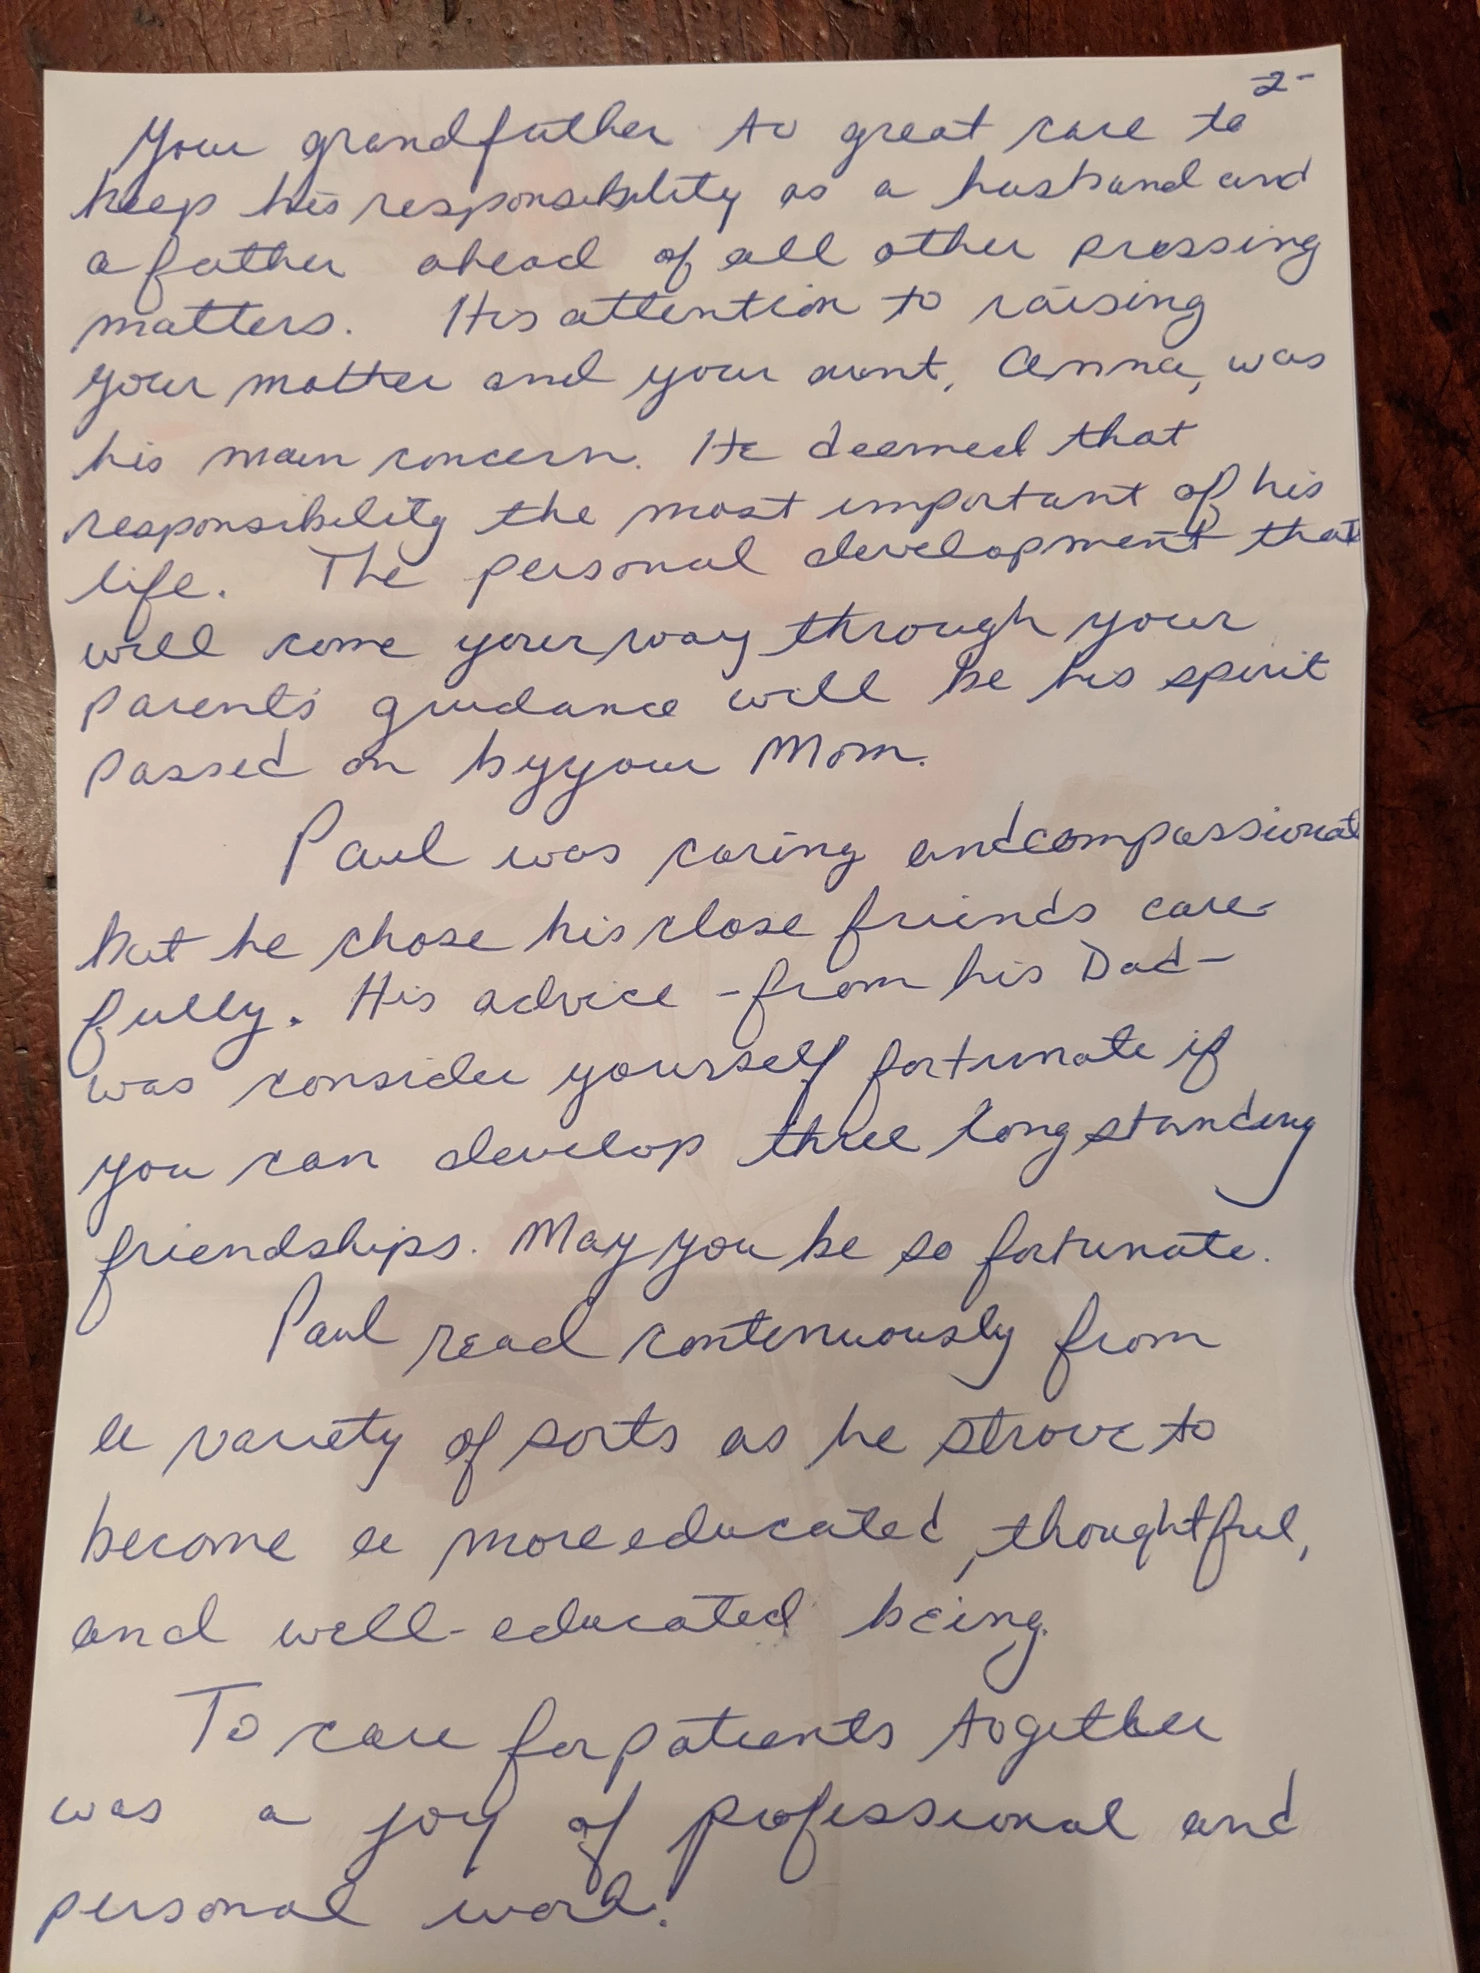 -2-
Your grandfather to great care to
keep his responsibility as a husband and
a father ahead of all other pressing
matters. His attention to raising
your mother and your aunt, Anna, was
his main concern. He deemed that
responsibility the most important of his
life. The personal development that
will come your way through your
parents' guidance will be his spirit
passed on by your Mom.
Paul was caring and compassionat
but he chose his close friends care-
fully. His advice - from his Dad -
was consider yourself fortunate if
you can develop three long standing
friendships. May you be so fortunate.
Paul read continuously from
a variety of sorts as he strove to
become a more educated, thoughtful,
and well-educated being.
To care for patients together
was a joy of professional and
personal work.